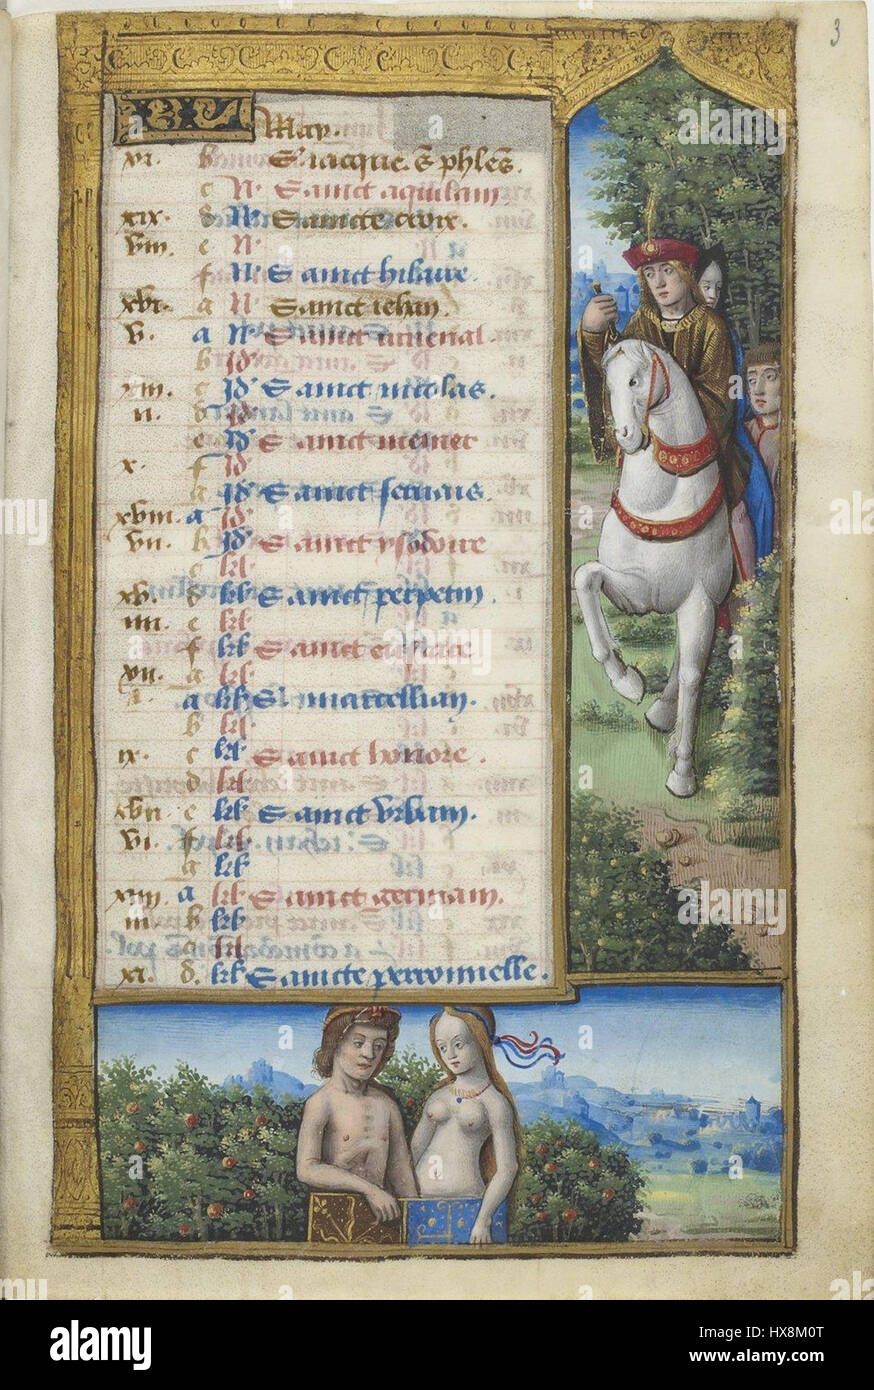 3
May.
vi. b S. iacque. S phles.
c N. Sanct aquilain
xix. d N. Saincte croix.
viii. e N.
f N. Sanct hilaire.
xvi. g N. Sanct iehan.
v. a N. Sanct
b id.
xiii. c id. Sanct nicolas.
ii. d id.
e id. Sanct memet
x. f id.
g id. Sanct seruais.
xviii. a id.
vii. b id. Sanct ysodoire
c kl.
xv. d kl. Sanct perpetin.
iiii. e kl.
f kl. Sanct
xii. g kl.
i. a kl. S. marcellian.
b kl.
ix. c kl. Sanct honore.
d kl.
xvii. e kl. Sanct vrbain.
vi. f kl.
g kl.
xiiii. a kl. Sanct germain.
iii. b kl.
c kl.
xi. d. kl. Saincte perronnelle.
alamy stock photo
HX8M0T
www.alamy.com